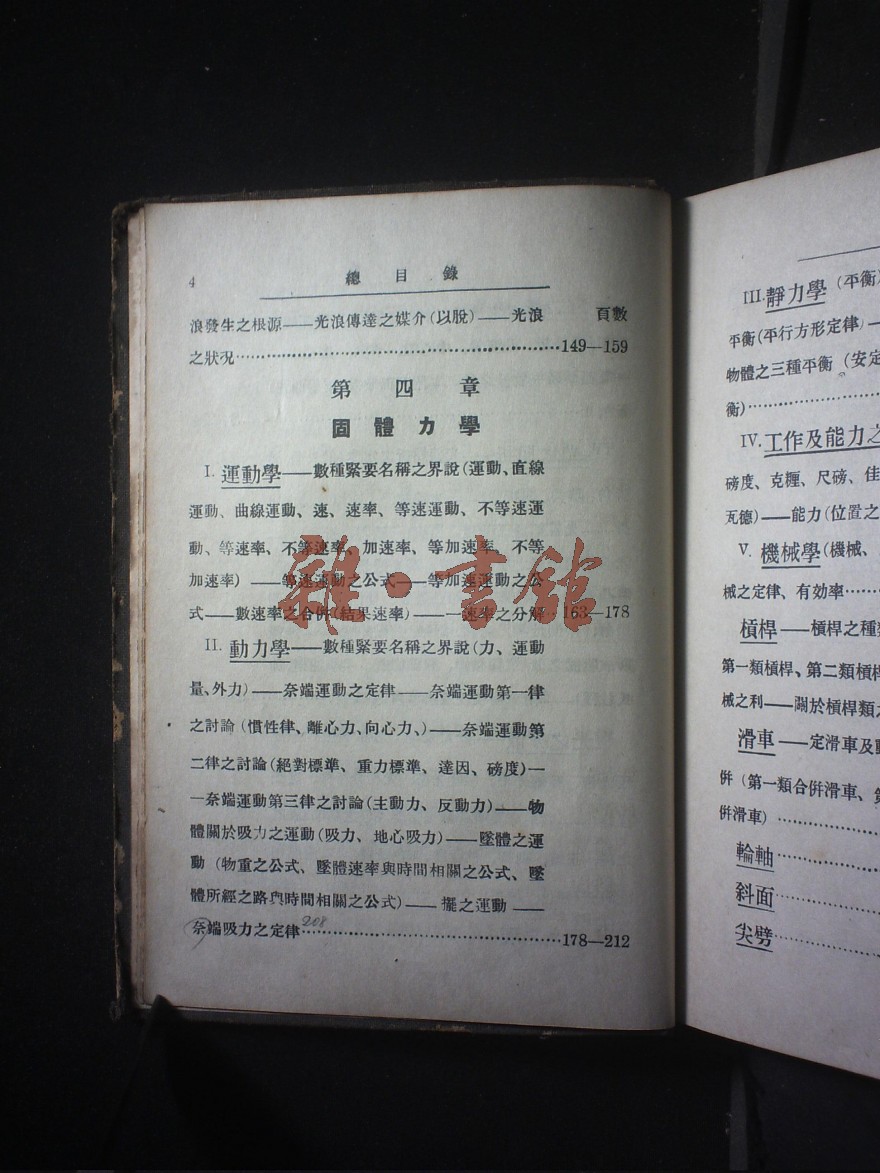 4
總目錄
浪發生之根源——光浪傳達之媒介(以脫)——光浪 頁數
之狀況……149—159
第四章
固體力學
I. 運動學——數種緊要名稱之界說(運動、直線
運動、曲線運動、速、速率、等速運動、不等速運
動、等速率、不等速率、加速率、等加速率、不等
加速率)——等速運動之公式——等加速運動之公
式——數速率之合併(結果速率)——一速率之分解 163—178
II. 動力學——數種緊要名稱之界說(力、運動
量、外力)——奈端運動之定律——奈端運動第一律
之討論(慣性律、離心力、向心力、)——奈端運動第
二律之討論(絕對標準、重力標準、達因、磅度)—
—奈端運動第三律之討論(主動力、反動力)——物
體關於吸力之運動(吸力、地心吸力)——墜體之運
動(物重之公式、墜體速率與時間相關之公式、墜
體所經之路與時間相關之公式)——擺之運動——
奈端吸力之定律 208……178—212
雜·書館
III. 靜力學(平衡)
平衡(平行方形定律)—
物體之三種平衡(安定
衡)……
IV. 工作及能力之
磅度、克糎、尺磅、佳
瓦德)——能力(位置之
V. 機械學(機械、
械之定律、有効率……
槓桿——槓桿之種類
第一類槓桿、第二類槓桿
械之利——關於槓桿類
滑車——定滑車及動
併(第一類合併滑車、第
併滑車)……
輪軸……
斜面……
尖劈……